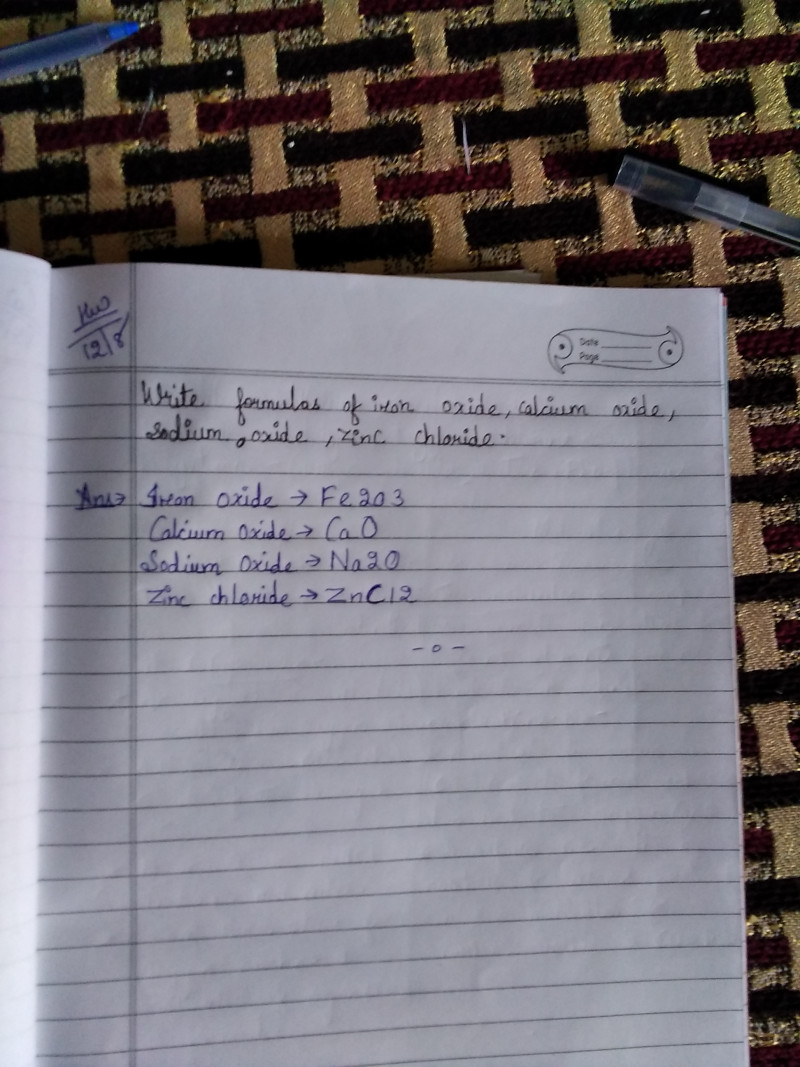 HW
12/8
Date
Page
Write formulas of iron oxide, calcium oxide,
sodium oxide, zinc chloride.
Ans→ Iron oxide → Fe2O3
Calcium oxide → CaO
Sodium oxide → Na2O
Zinc chloride → ZnCl2
-o-